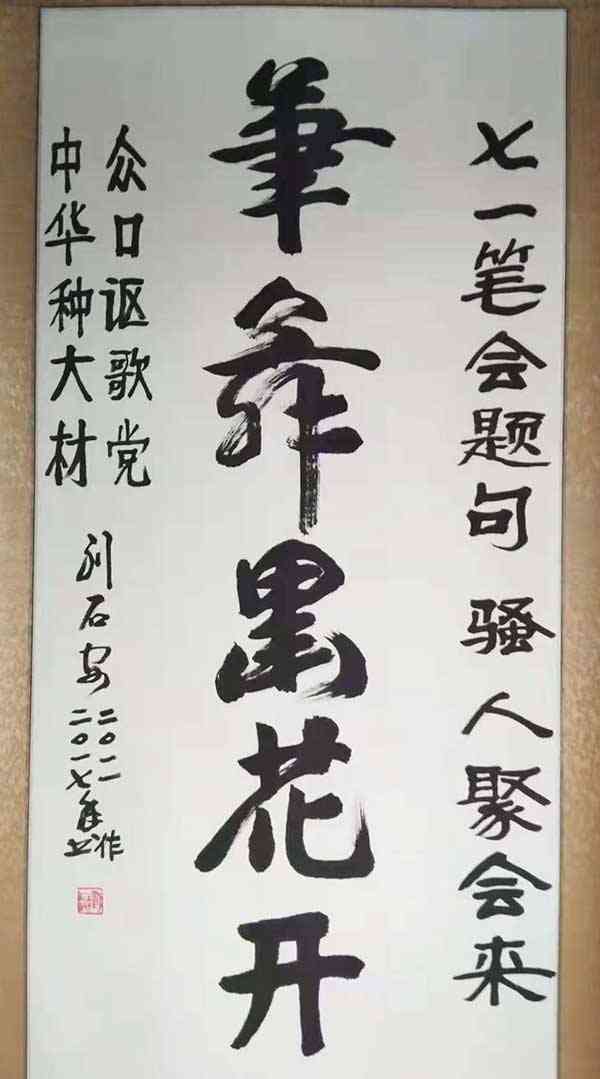 七一笔会题句 骚人聚会来
筆舞墨花开
众口讴歌党
中华种大材
刘石安
二〇一一作
二〇一七年书